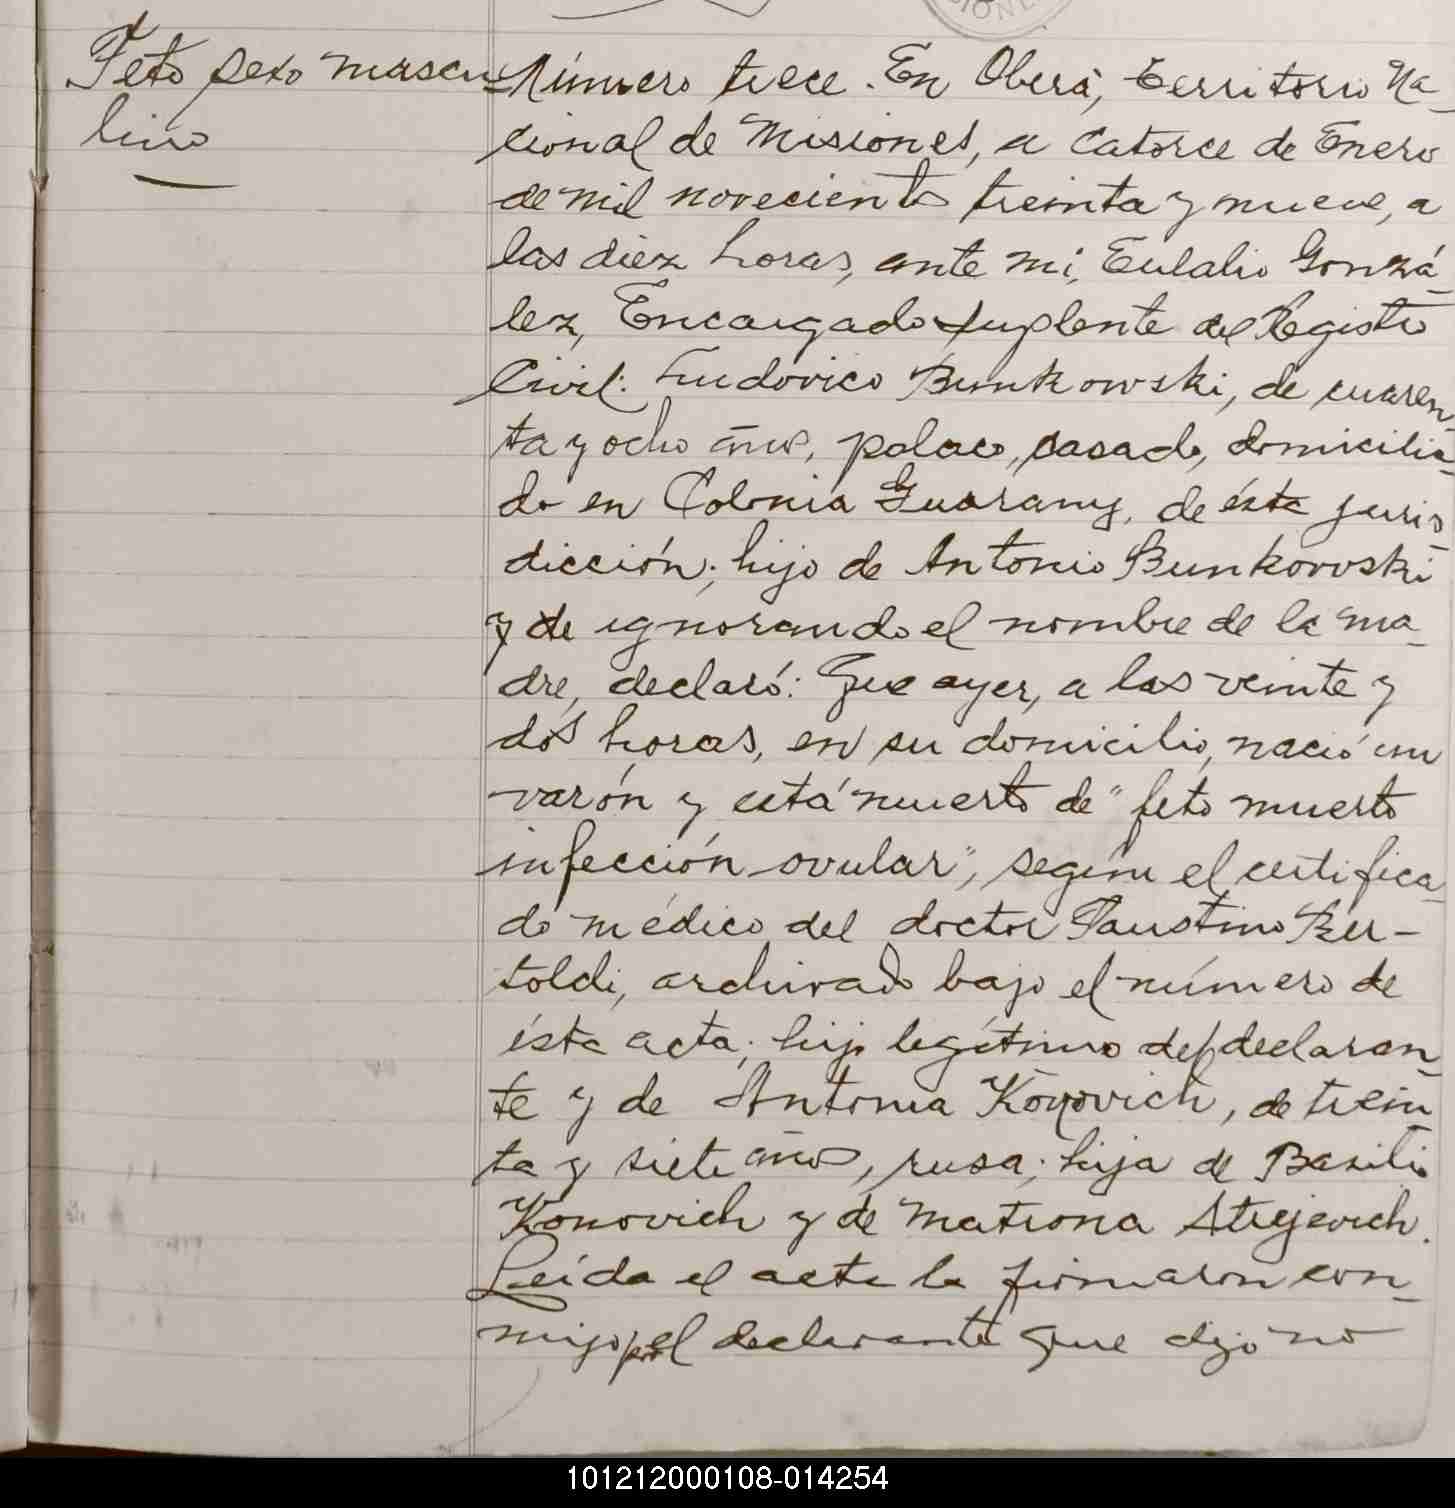 Feto sexo mascu-
lino
Número trece. En Oberá, Territorio Na-
cional de Misiones, a catorce de Enero
de mil novecientos treinta y nueve, a
las diez horas, ante mi, Eulalio Gonzá-
lez, Encargado suplente del Registro
Civil: Ludovico Bunkowski, de cuaren-
ta y ocho años, polaco, casado, domicilia-
do en Colonia Guarany, de ésta juris-
dicción; hijo de Antonio Bunkowski
y de ignorando el nombre de la ma-
dre, declaró: Que ayer, a las veinte y
dos horas, en su domicilio, nació un
varón y está muerto de "feto muerto
infección ovular", según el certifica-
do médico del doctor Faustino Ber-
toldi, archivado bajo el número de
ésta acta; hijo legítimo del declaran-
te y de Antonia Konovich, de trein
ta y siete años, rusa; hija de Basilio
Konovich y de Matrona Strejevich.
Leída el acta la firmaron con-
migo, por el declarante que dijo no
SIONE
101212000108-014254